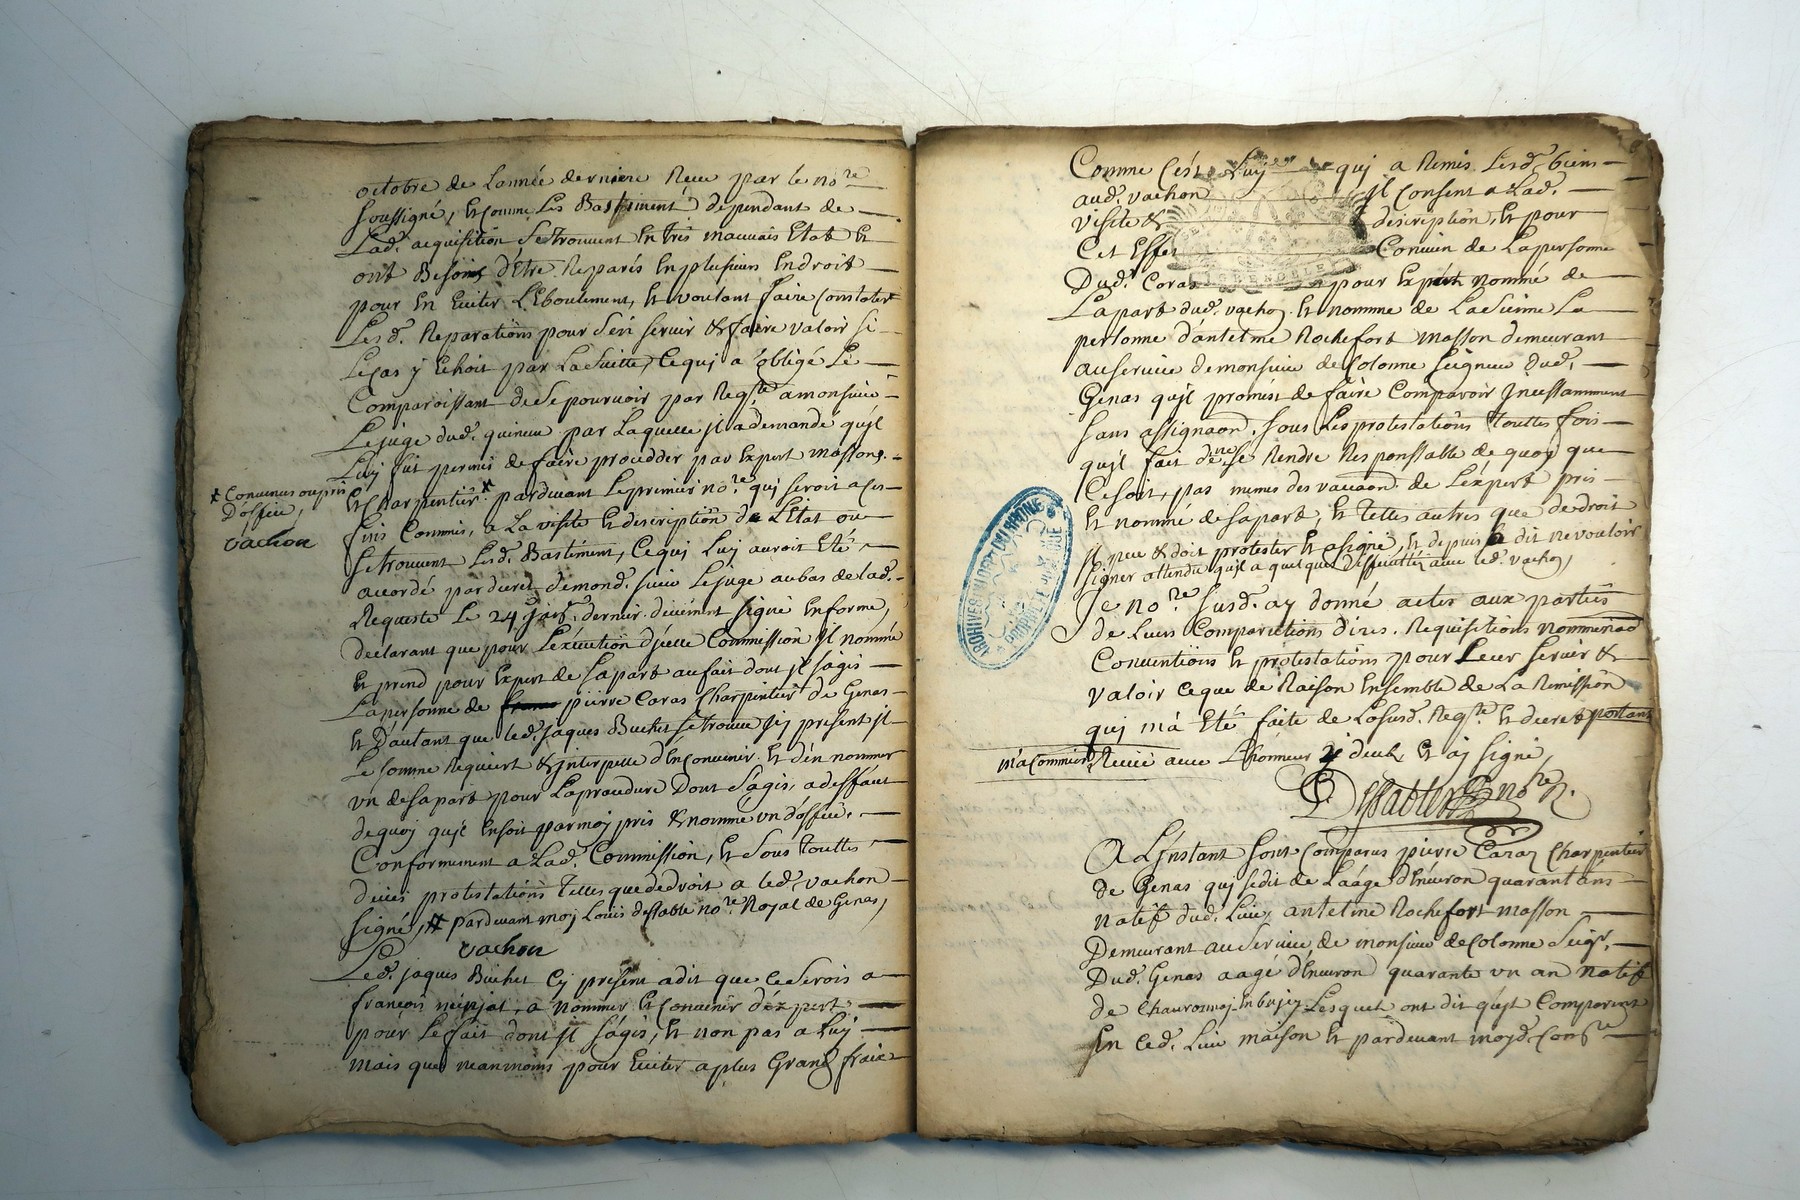 octobre de Lannée derniere Receu par le no.re
soussigné, Et comme Les Bastiments dependant de
Lad. acquisition se trouvent En tres mauvais Etat Et
ont Besoins d'Etre Reparés En plusieurs Endroit
pour En Eviter L'Eboulement, Et voulant faire Constater
Lesd. Reparations pour s'en servir & faire valoir si
Le Cas y Echoit par La suitte, Ce qui a obligé Le
Comparoissant de se pourvoir par Reqte a monsieur
Le juge dud. par Laquelle jl a demandé qu'jl
Luy fut permis de faire proceder par Expert massons
* Convenus ou pris
D'office,
vachon
Et Charpentiers * pardevant Le premier no.re qui seroit a ces
fins Commis, a La visite Et description de L'Etat ou
se trouvent Lesd. Bastiment, Ce qui Luy auroit Eté
accordé par decret de mond. sieur Le juge au bas de lad.
Requeste Le 24 dernier. duement signé En forme,
declarant que pour L'execution d'jcelle Commission jl nomme
Et prend pour Expert de sa part au fait dont jl s'agis
La personne de pierre Caras Charpentier de Genas
Et D'autant que led. jaques Buchet se trouve jcy present jl
Le somme Requiert & jnterpelle d'En convenir Et d'en nommer
un de sa part pour La procedure Dont s'agis, a deffaut
de quoy qu'jl En soit par moy pris & nommé un d'office,
Conformement a Lad. Commission, Et sous touttes
dues protestations telles que de droit a led. vachon
signé, # pardevant moy Louis desSable no.re Royal de Genas,
vachon
Led. jaques Buchet Cy present a dit que Ce seroit a
françois a nommer Et Convenir d'expert
pour Le fait dont jl s'agis, Et non pas a Luy
mais que neanmoins pour Eviter a plus Grands fraix
Comme C'est Luy qui a Remis Lesd. biens
aud. vachon jl Consent a Lad.
visite & description, Et pour
Cet Effet Convien de La personne
Dud. Caras pour Expert nommé de
La part dud. vachon Et nomme de La sienne La
personne d'antelme Rochefort masson demeurant
au service de monsieur de Colonne seigneur dud.
Genas qu'jl promet de faire Comparoir jncessamment
sans assignaon. sous Les protestations touttes fois
qu'jl fait de ne se Rendre Responssable de quoy que
Ce soit, pas memes des vacaon. de L'expert pris
Et nommé de sa part, Et telles autres que de droit
jl peu & doit protester Et a signé, Et depuis a dit ne vouloir
signer attendu qu'jl a quelque difficultés avec led. vachon,
Je no.re susd. ay donné actes aux parties
de Leurs Comparutions dires, Requisitions nominaon
Conventions Et protestations pour Leur servir &
valoir Ce que de Raison Ensemble de La Remission
qui m'a Eté faite de La susd. Reqte Et decret portant
ma Commission Receüe avec L'honneur y deub Et ay signé,
DesSable no.re R.
A L'jnstant sont Comparus pierre Caras Charpentier
de Genas qui se dit de L'aage d'Environ quarant ans
natif dud. Lieu, antelme Rochefort masson
Demeurant au service de monsieur de Colonne Seigr.
Dud. Genas aagé d'Environ quarante un an natif
de En bujey Lesquels ont dit qu'jl Comparent
En Ced. Lieu maison Et pardevant moyd.
ARCHIVES DU DEPT DU RHONE
PROPRIETE PUBLIQUE
GRENOBLE